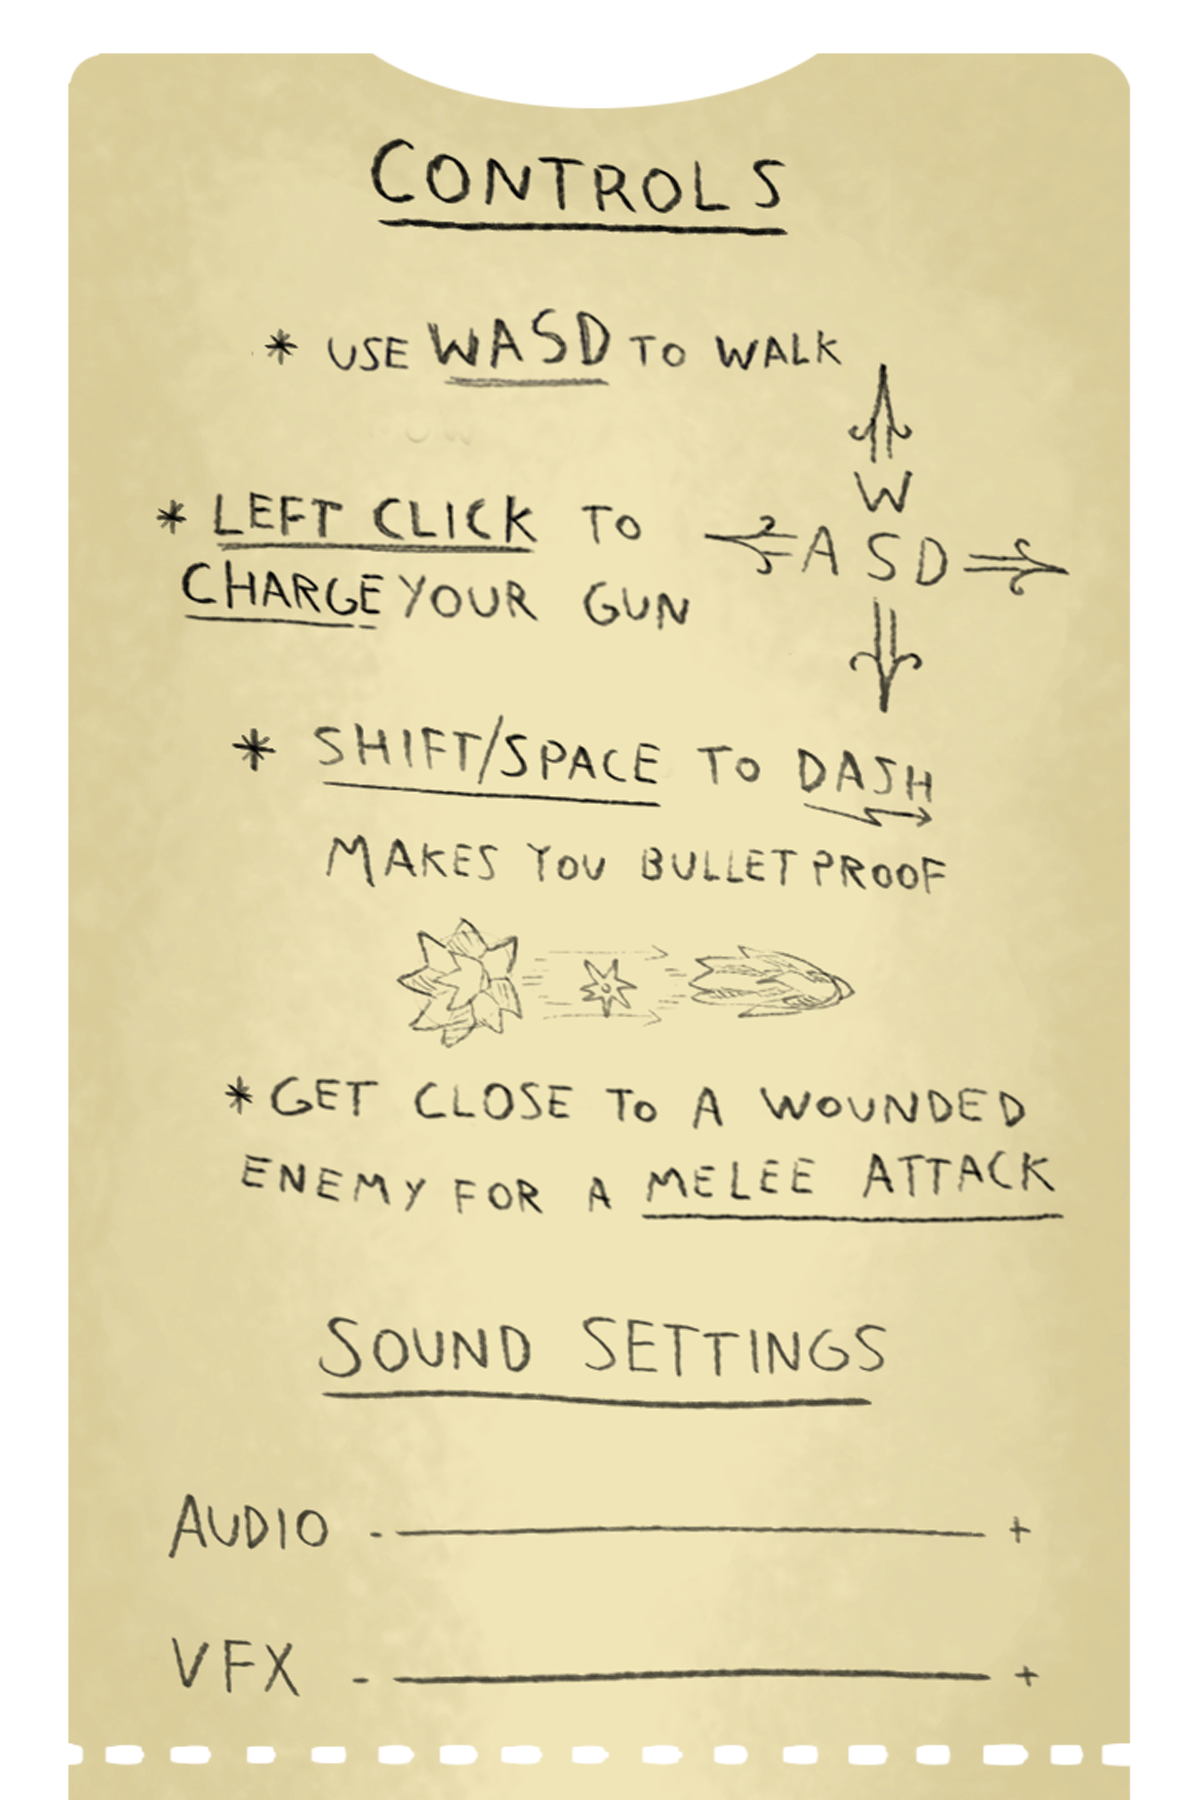 CONTROLS
* USE WASD TO WALK
W
A S D
* LEFT CLICK TO
CHARGE YOUR GUN
* SHIFT/SPACE TO DASH
MAKES YOU BULLETPROOF
* GET CLOSE TO A WOUNDED
ENEMY FOR A MELEE ATTACK
SOUND SETTINGS
AUDIO - +
VFX - +